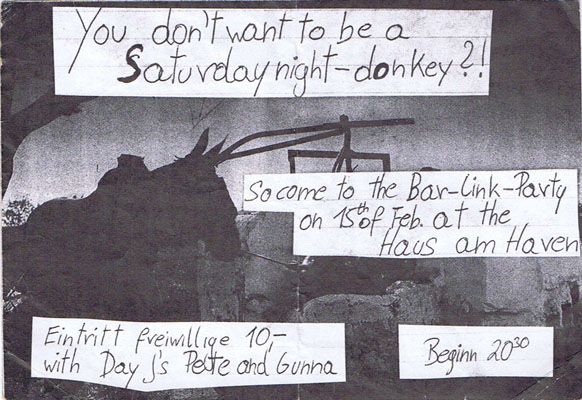 You don't want to be a
Saturdaynight-donkey?!
So come to the Bar-Link-Party
on 15th of Feb. at the
Haus am Haven
Eintritt freiwillige 10,-
with Day J's Pette and Gunna
Beginn 20 30